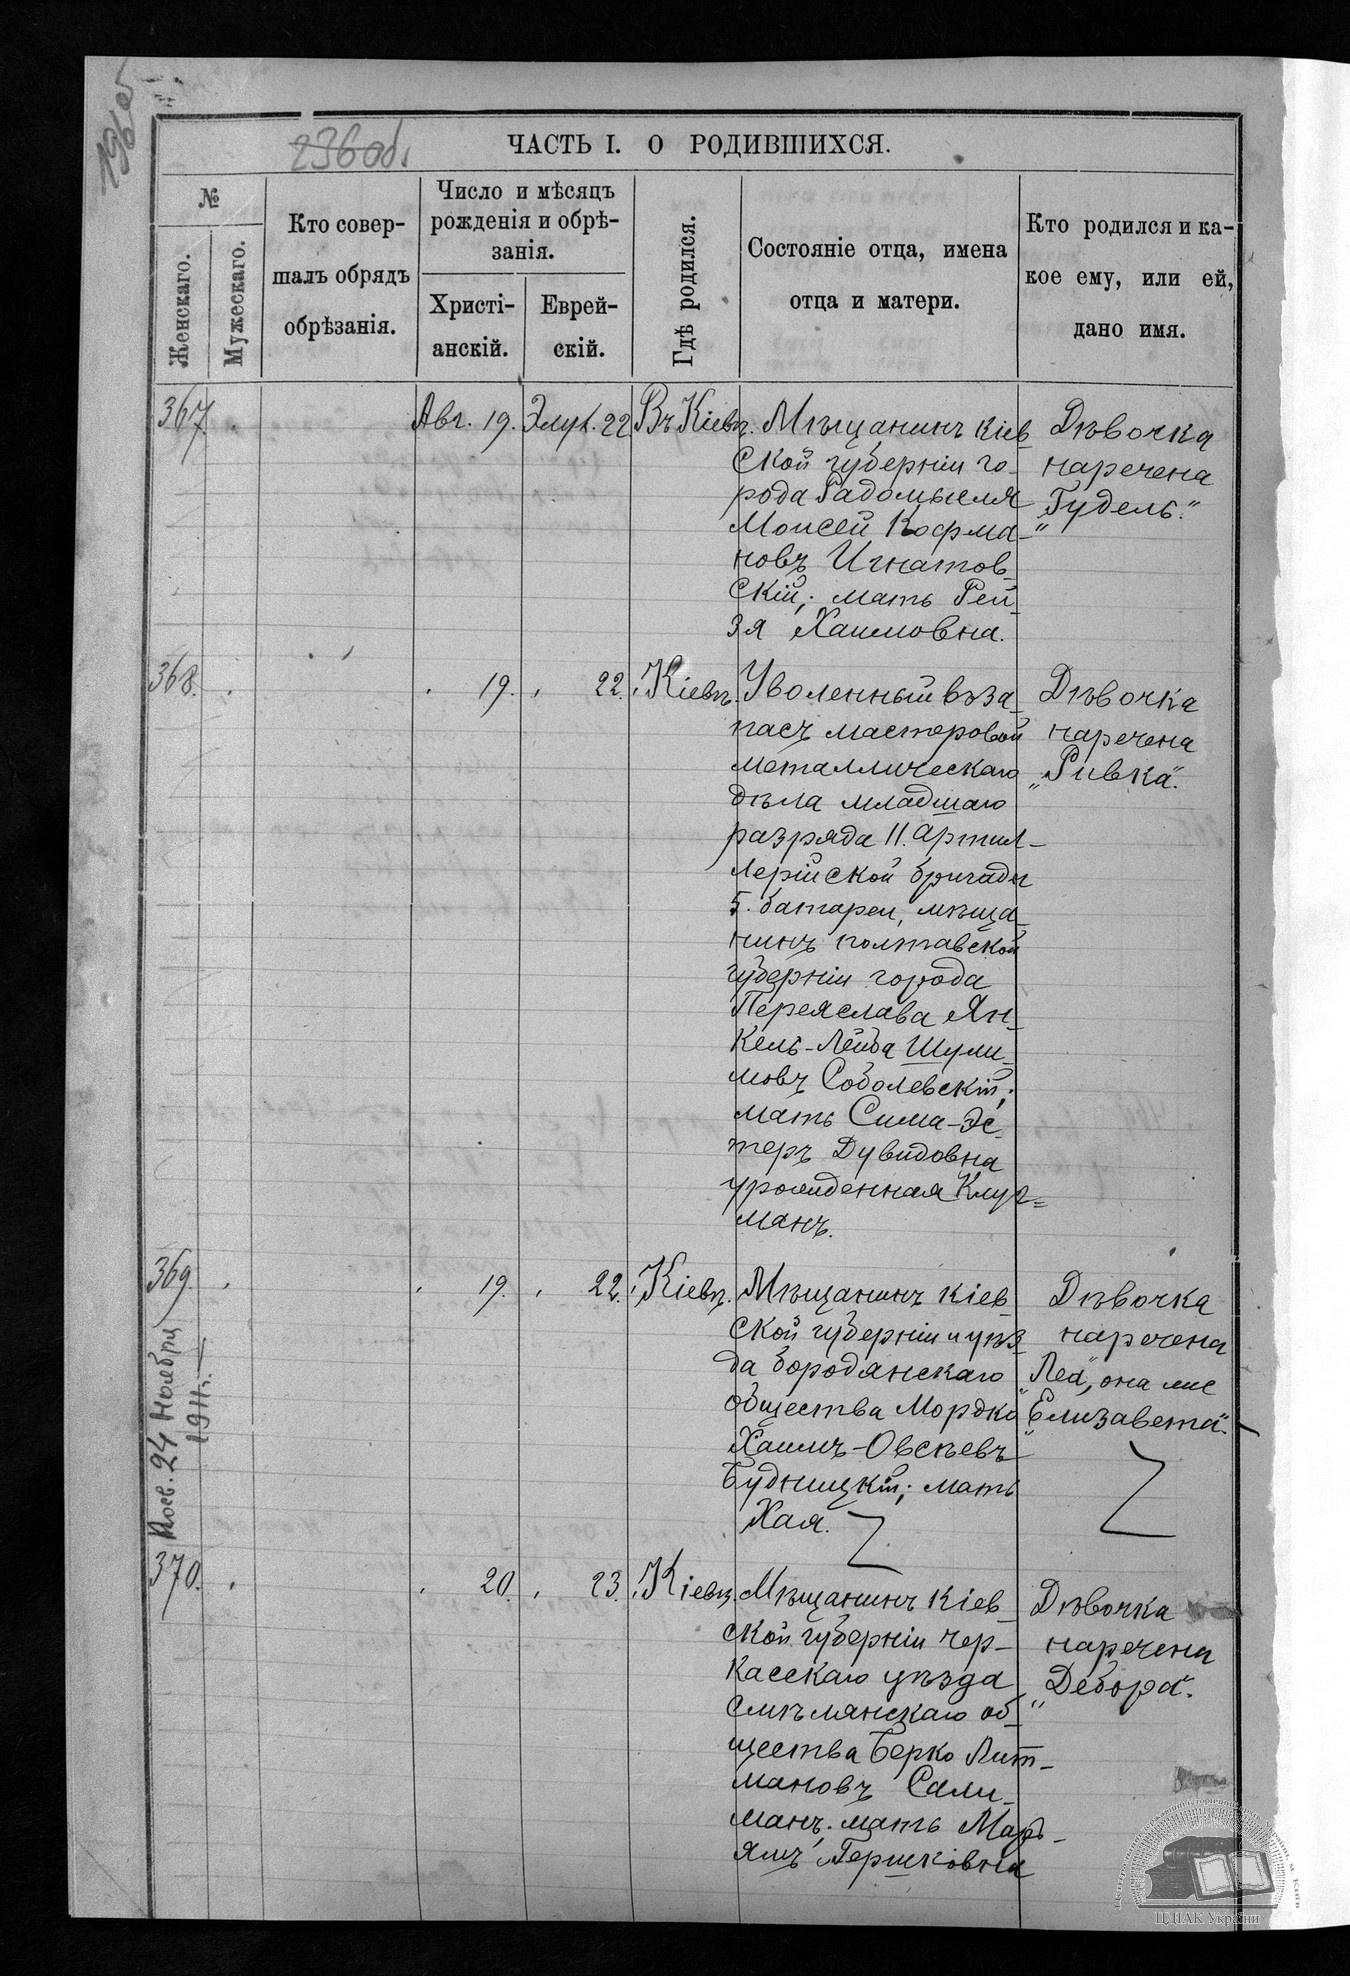 236об.
ЧАСТЬ I. О РОДИВШИХСЯ.
№
Женскаго.
Мужескаго.
Кто совер-
шалъ обрядъ
обрѣзанія.
Число и мѣсяцъ
рожденія и обрѣ-
занія.
Христі-
анскій.
Еврей-
скій.
Гдѣ родился.
Состояніе отца, имена
отца и матери.
Кто родился и ка-
кое ему, или ей,
дано имя.
367. Авг. 19. Элул. 22 Въ Кіевѣ.
Мѣщанинъ Кіев-
ской губерніи го-
рода Радомысля
Моисей Кофма-
новъ Игнатов-
скій; мать Рей-
зя Хаимовна.
Дѣвочка
наречена
„Гудель.“
368. 19. 22. Кіевѣ.
Уволенный въ за-
пасъ мастеровой
металлическаго
дѣла младшаго
разряда 11. артил-
лерійской бригады
5. батареи, мѣща-
нинъ полтавской
губерніи города
Переяслава Ян-
кель-Лейба Шули-
мовъ Соболевскій;
мать Сима-Эс-
теръ Дувидовна
урожденная Клуг-
манъ.
Дѣвочка
наречена
„Ривка“.
369. 19. 22. Кіевѣ.
Мѣщанинъ Кіев-
ской губерніи и уѣз-
да бородянскаго
общества Мордко
Хаимъ-Овсѣевъ
Будницкій; мать
Хая.
Дѣвочка
наречена
„Лея“, она же
„Елизавета“.
24 Ноября
1911г.
370. 20. 23. Кіевѣ.
Мѣщанинъ Кіев-
ской губерніи Чер-
касскаго уѣзда
Смѣлянскаго об-
щества Берко Лит-
мановъ Сали-
манъ; мать Марь-
ямъ Гершковна
Дѣвочка
наречена
„Дебора“.
ЦДІАК України